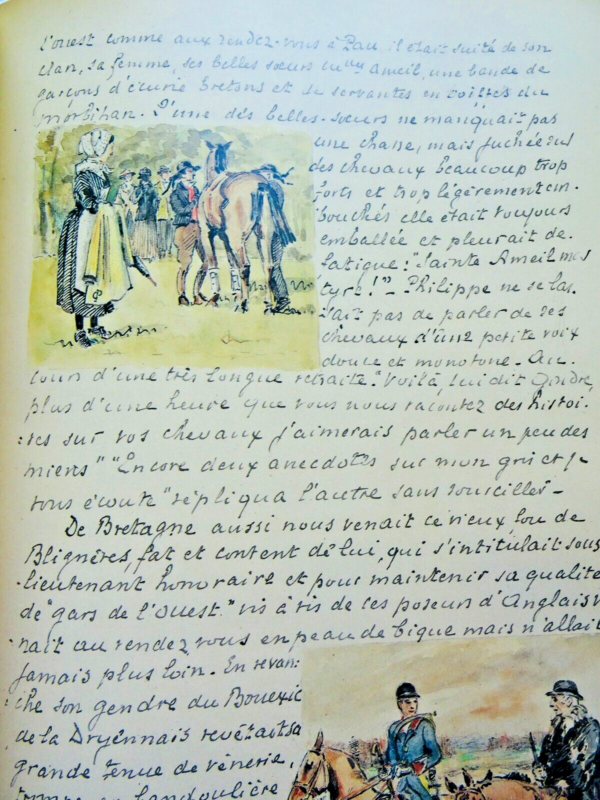 l'ouest comme aux rendez-vous à Pau il était suité de son
clan, sa femme, ses belles sœurs Ameil, une bande de
garçons d'écurie bretons et de servantes en coiffes du
morbihan. L'une des belles-sœurs ne manquait pas
une chasse, mais juchée sur
des chevaux beaucoup trop
forts et trop légèrement em-
bouchés elle était toujours
emballée et pleurait de
fatigue. "Sainte Ameil mar
tyre!" – Philippe ne se las-
sait pas de parler de ses
chevaux d'une petite voix
douce et monotone – Au
cours d'une très longue retraite. "Voilà, lui dit Gondre,
plus d'une heure que vous nous racontez des histoi-
res sur vos chevaux j'aimerais parler un peu des
miens" "Encore deux anecdotes sur mon gris et je
vous écoute" répliqua l'autre sans sourciller –
De Bretagne aussi nous venait ce vieux fou de
Blignères, fat et content de lui, qui s'intitulait sous
-lieutenant honoraire et pour maintenir sa qualité
de "gars de l'ouest" vis à vis de ces poseurs d'Anglais v
nait au rendez vous en peau de bique mais n'allait
jamais plus loin. En revan-
che son gendre du Bouexic
de la Dryennais revêtait sa
grande tenue de vénerie,
trompe en bandoulière